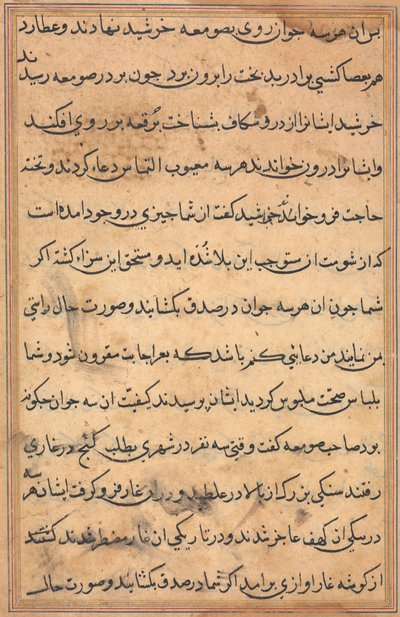 بس ان هر سه جوان روی بصومعه خرشید نهادند و عطارد
هم بعصا کشیی برادر بدبخت را برون برد چون بر در صومعه رسیدند
خرشید ایشانرا از در و شکاف بشناخت برقعه بر روی افکند
و ایشانرا درون خواندند هر سه معیوب التماس دعا کردند و تخته
حاجت فرو خواندند خرشید کفت از شما جیزی در وجود امده است
که از شومت ان مستوجب این بلا شده اید و مستحق این سزاء کشته اکر
شما جون ان هر سه جوان در صدق بکشایند و صورت حال راستی
بمن نمایند من دعائی کنم باشد که بعز اجابت مقرون شود و شما
بلباس صحت ملبوس کردید ایشان پرسیدند کیفیت ان سه جوان جکونه
بود صاحب صومعه کفت وقتی سه نفر در شهری بطلب کنج در غاری
رفتند سنکی بزرک از بالا در غلطید و در ان غار فرو کرفت ایشان هر سه
در تنکی ان کهف عاجز شدند و در تاریکی ان غار مضطر شدند کشتند
از کوشه غار اوازی برامد اکر شما در صدق بکشایند و صورت حال